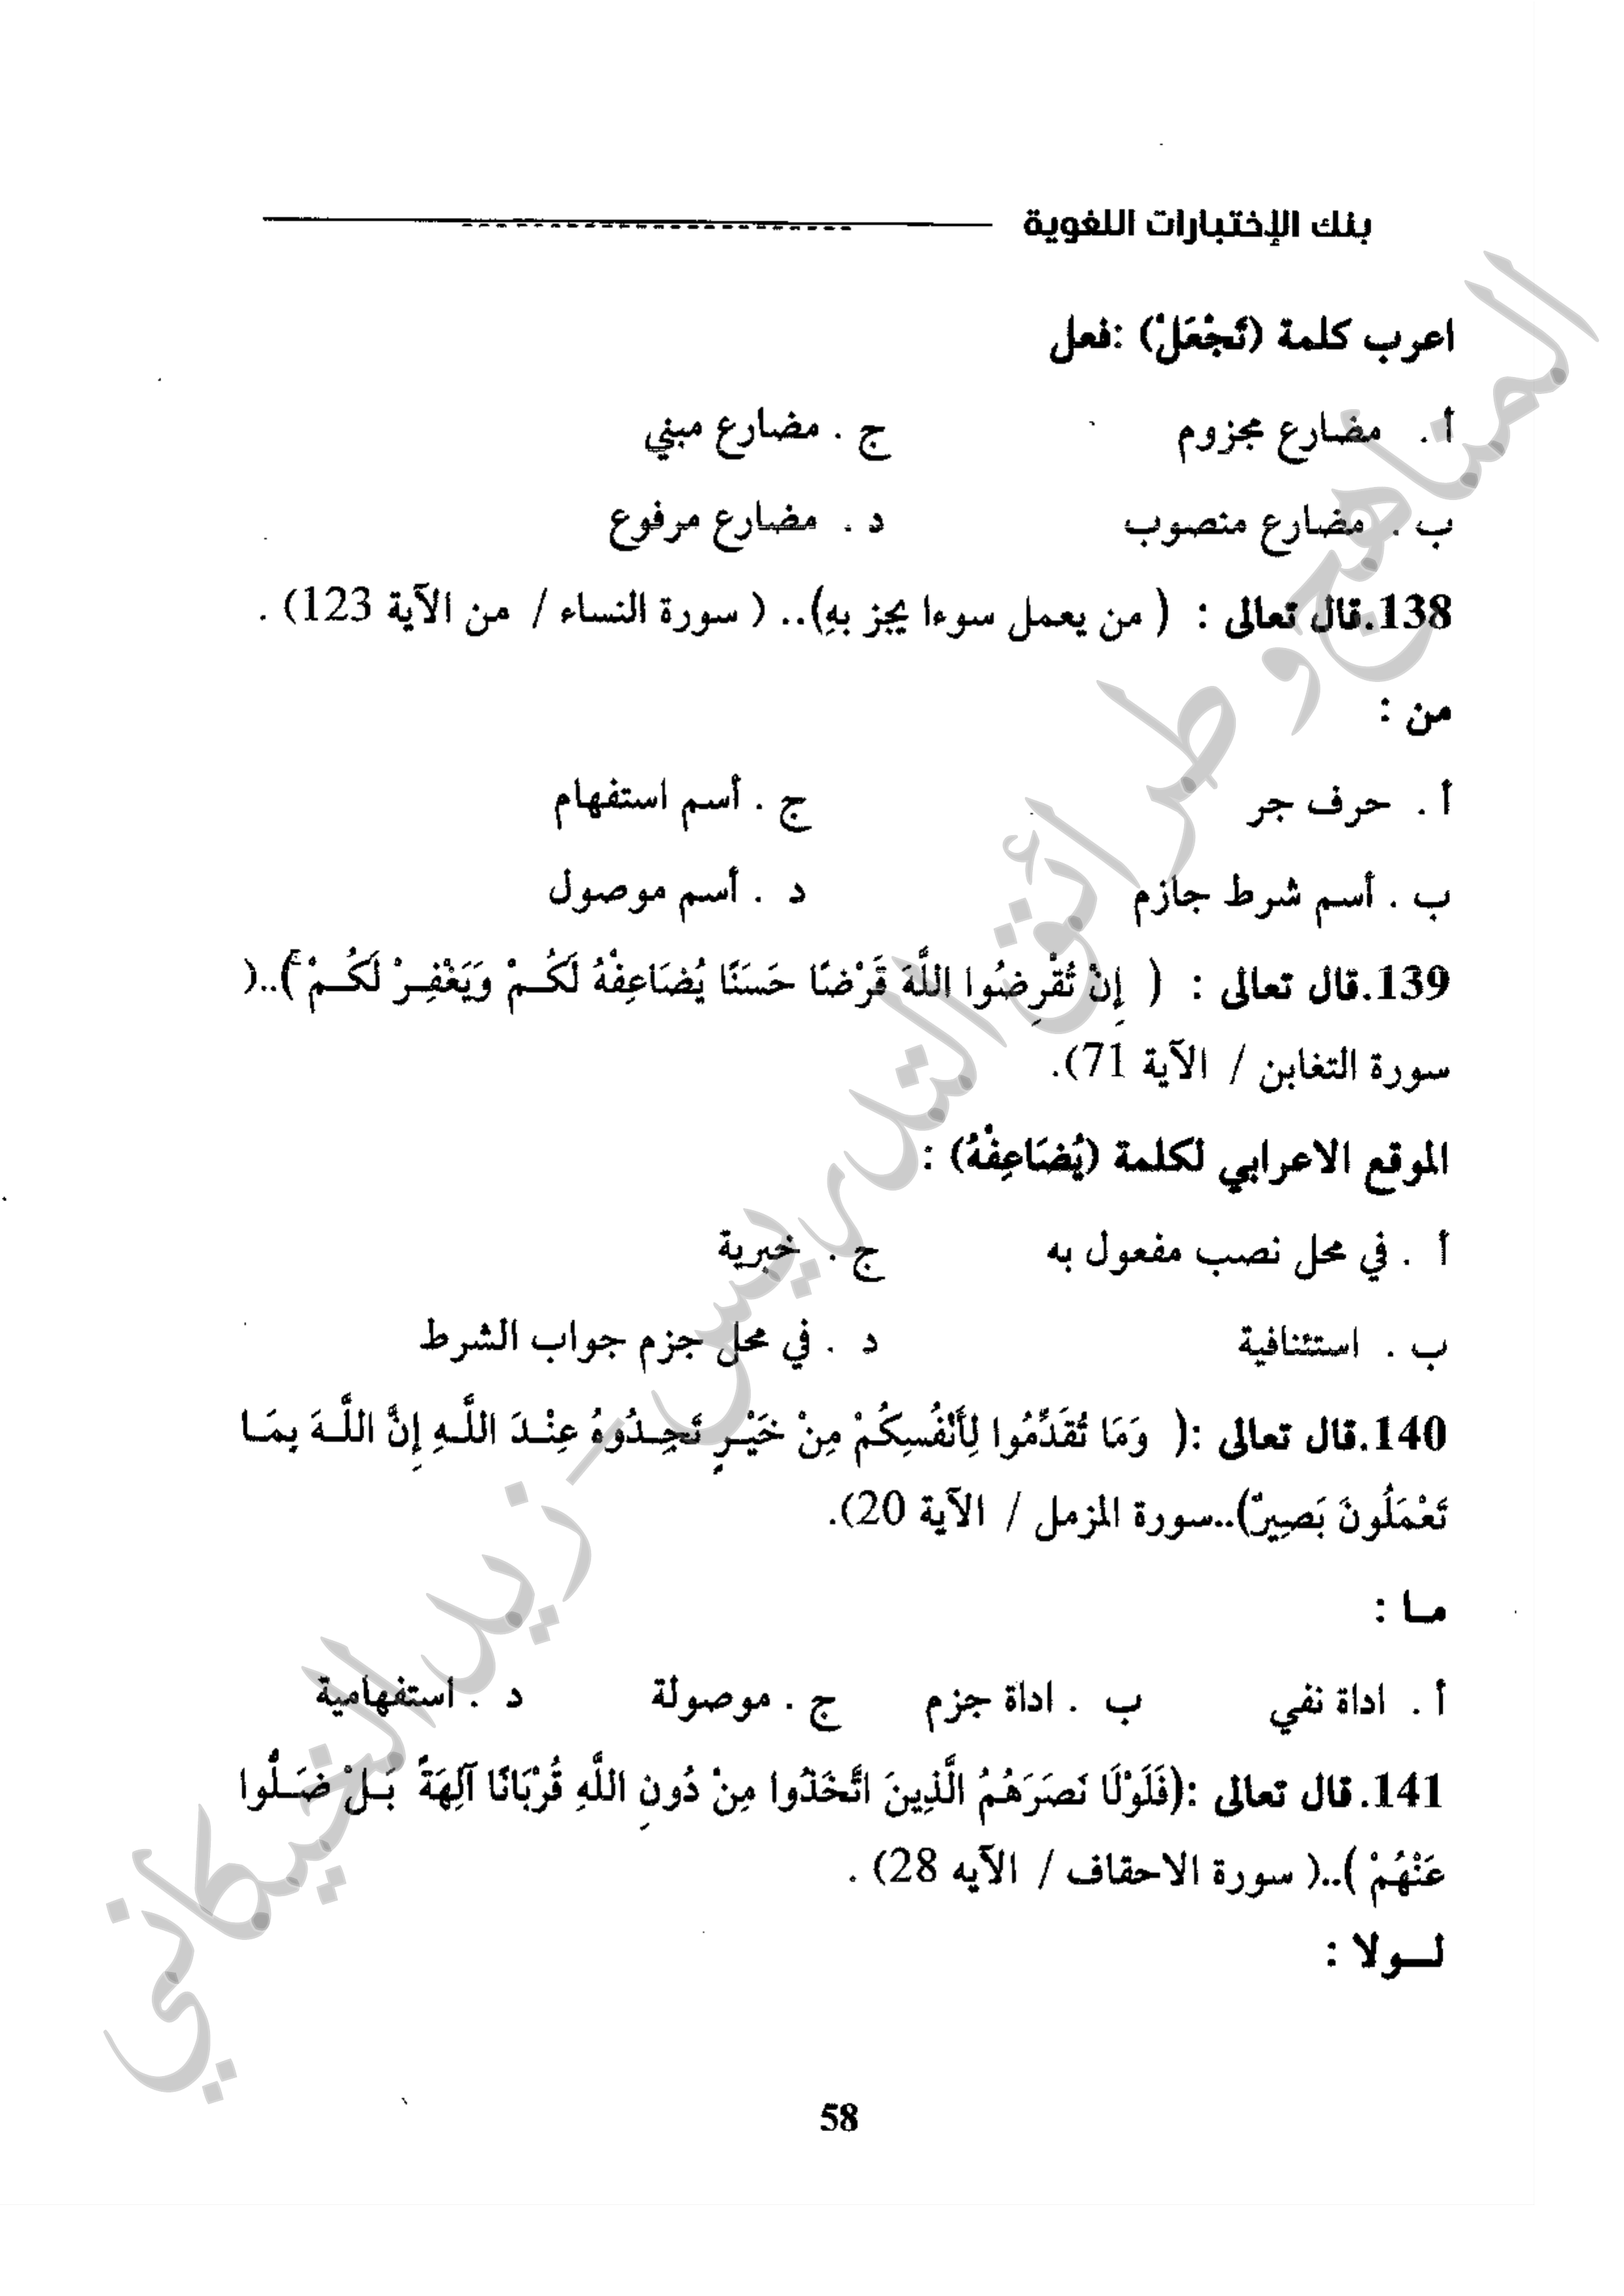 بنك الإختبارات اللغوية
اعرب كلمة (تَجْعَلْ) :فعل
أ . مضارع مجزوم ج . مضارع مبني
ب . مضارع منصوب د . مضارع مرفوع
138.قال تعالى : ( من يعمل سوءا يجز بهِ).. ( سورة النساء / من الآية 123) .
من :
أ . حرف جر ج . أسم استفهام
ب . أسم شرط جازم د . أسم موصول
139.قال تعالى : ( إِنْ تُقْرِضُوا اللَّهَ قَرْضًا حَسَنًا يُضَاعِفْهُ لَكُمْ وَيَغْفِرْ لَكُمْ ۚ)..(
سورة التغابن / الآية 71).
الموقع الاعرابي لكلمة (يُضَاعِفْهُ) :
أ . في محل نصب مفعول به ج . خبرية
ب . استئنافية د . في محل جزم جواب الشرط
140.قال تعالى :( وَمَا تُقَدِّمُوا لِأَنْفُسِكُمْ مِنْ خَيْرٍ تَجِدُوهُ عِنْدَ اللَّهِ إِنَّ اللَّهَ بِمَا
تَعْمَلُونَ بَصِيرٌ)..سورة المزمل / الآية 20).
ما :
أ . اداة نفي ب . اداة جزم ج . موصولة د . استفهامية
141. قال تعالى :(فَلَوْلَا نَصَرَهُمُ الَّذِينَ اتَّخَذُوا مِنْ دُونِ اللَّهِ قُرْبَانًا آلِهَةً بَلْ ضَلُّوا
عَنْهُمْ )..( سورة الاحقاف / الآيه 28) .
لولا :
58
المناهج وطرائق التدريس - زيد الخيكاني